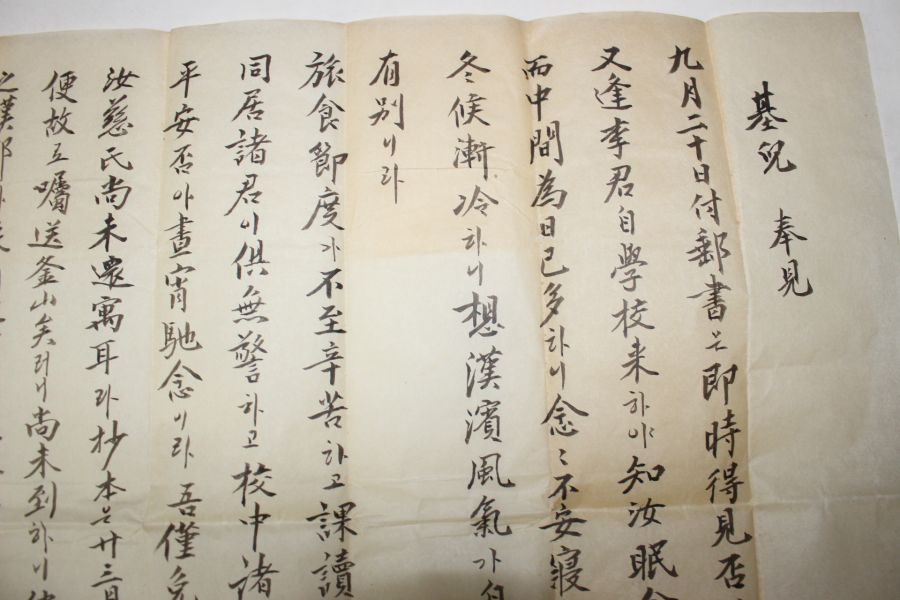 基兒 奉見
九月二十日付郵書는即時得見否
又逢李君自學校来하야知汝眠
而中間為日已多하니念〻不安寢
冬候漸冷하니想漢濱風氣가自
有別니라
旅食節度가不至辛苦하고課讀
同居諸君이俱無警하고校中諸
平安否아晝宵馳念이라 吾僅免
汝慈氏尚未還寓耳라抄本은廿三日
便故玉囑送釜山矣러니尚未到하니
之漢